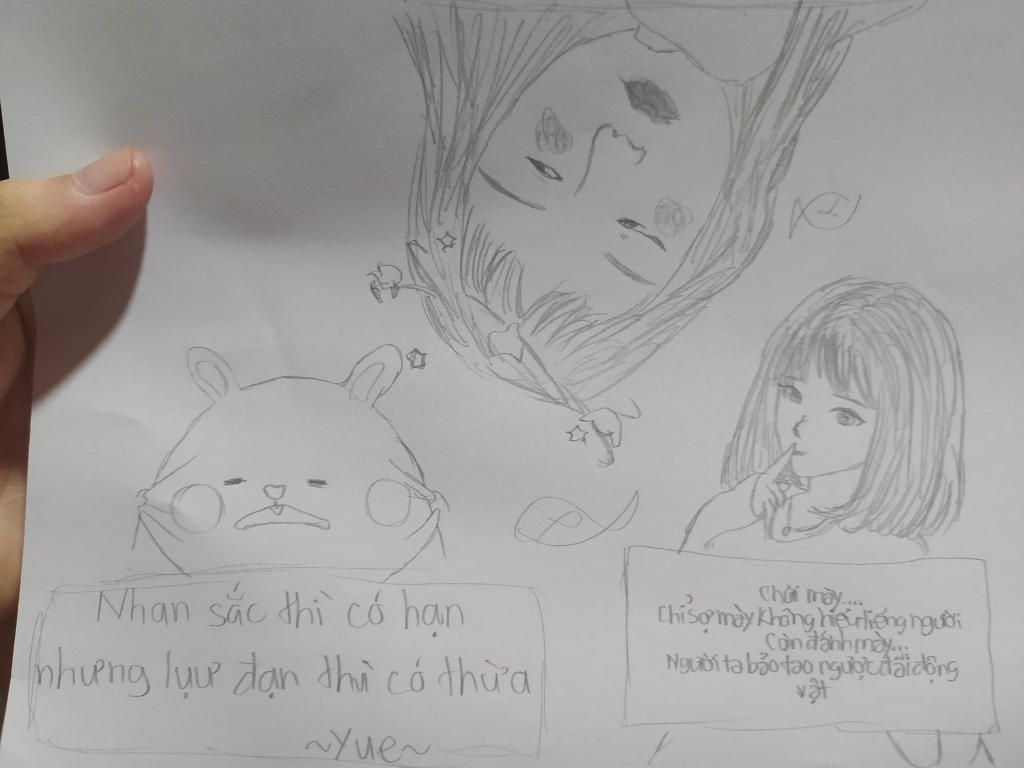 Nhan sắc thì có hạn
nhưng lựu đạn thì có thừa
~Yue~
Chửi mày...
Chỉ sợ mày không hiểu tiếng người
Còn đánh mày...
Người ta bảo tao ngược đãi động
vật